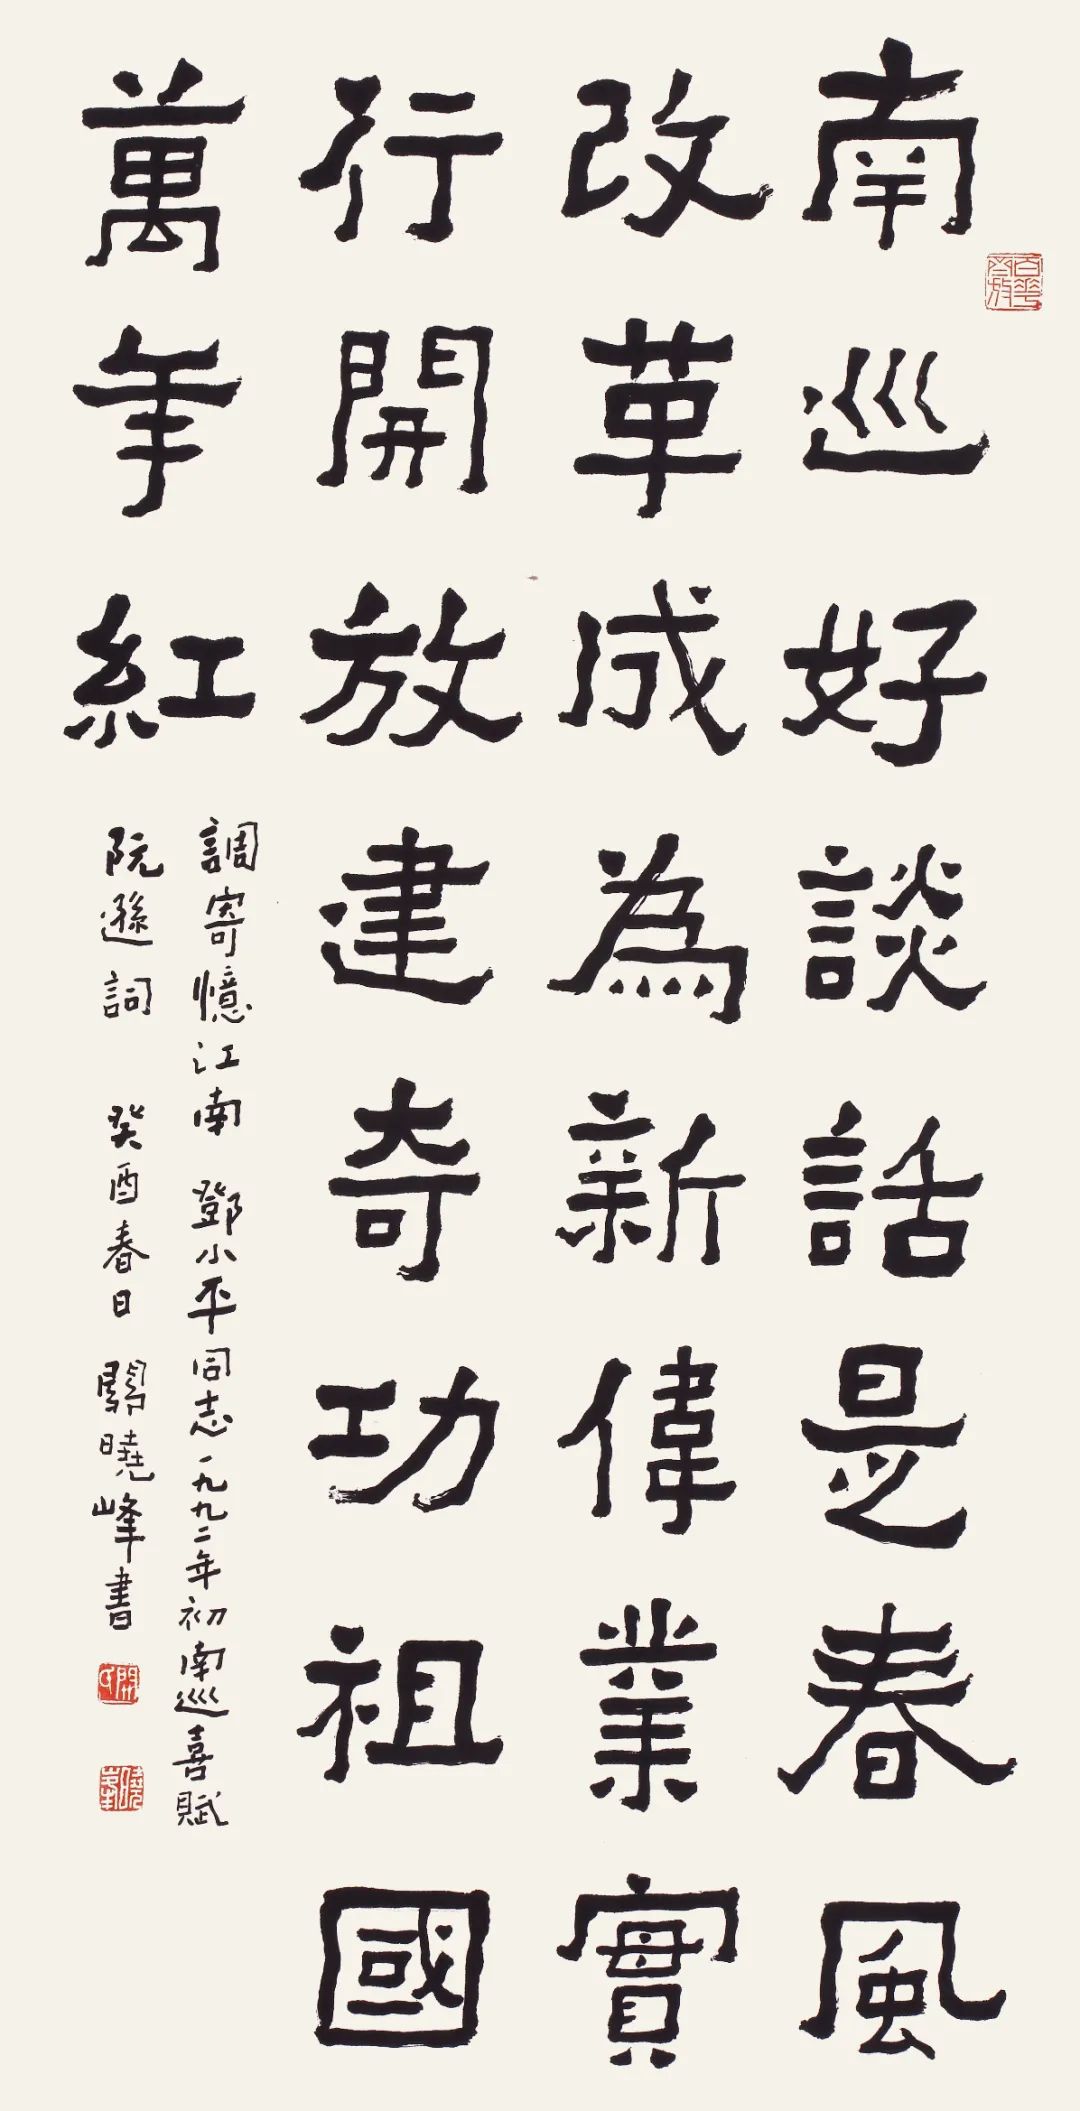 南巡好談話是春風
改革成為新偉業實
行開放建奇功祖國
萬年紅
調寄憶江南 鄧小平同志一九九二年初南巡喜賦
阮遜詞 癸酉春日 關曉峰書